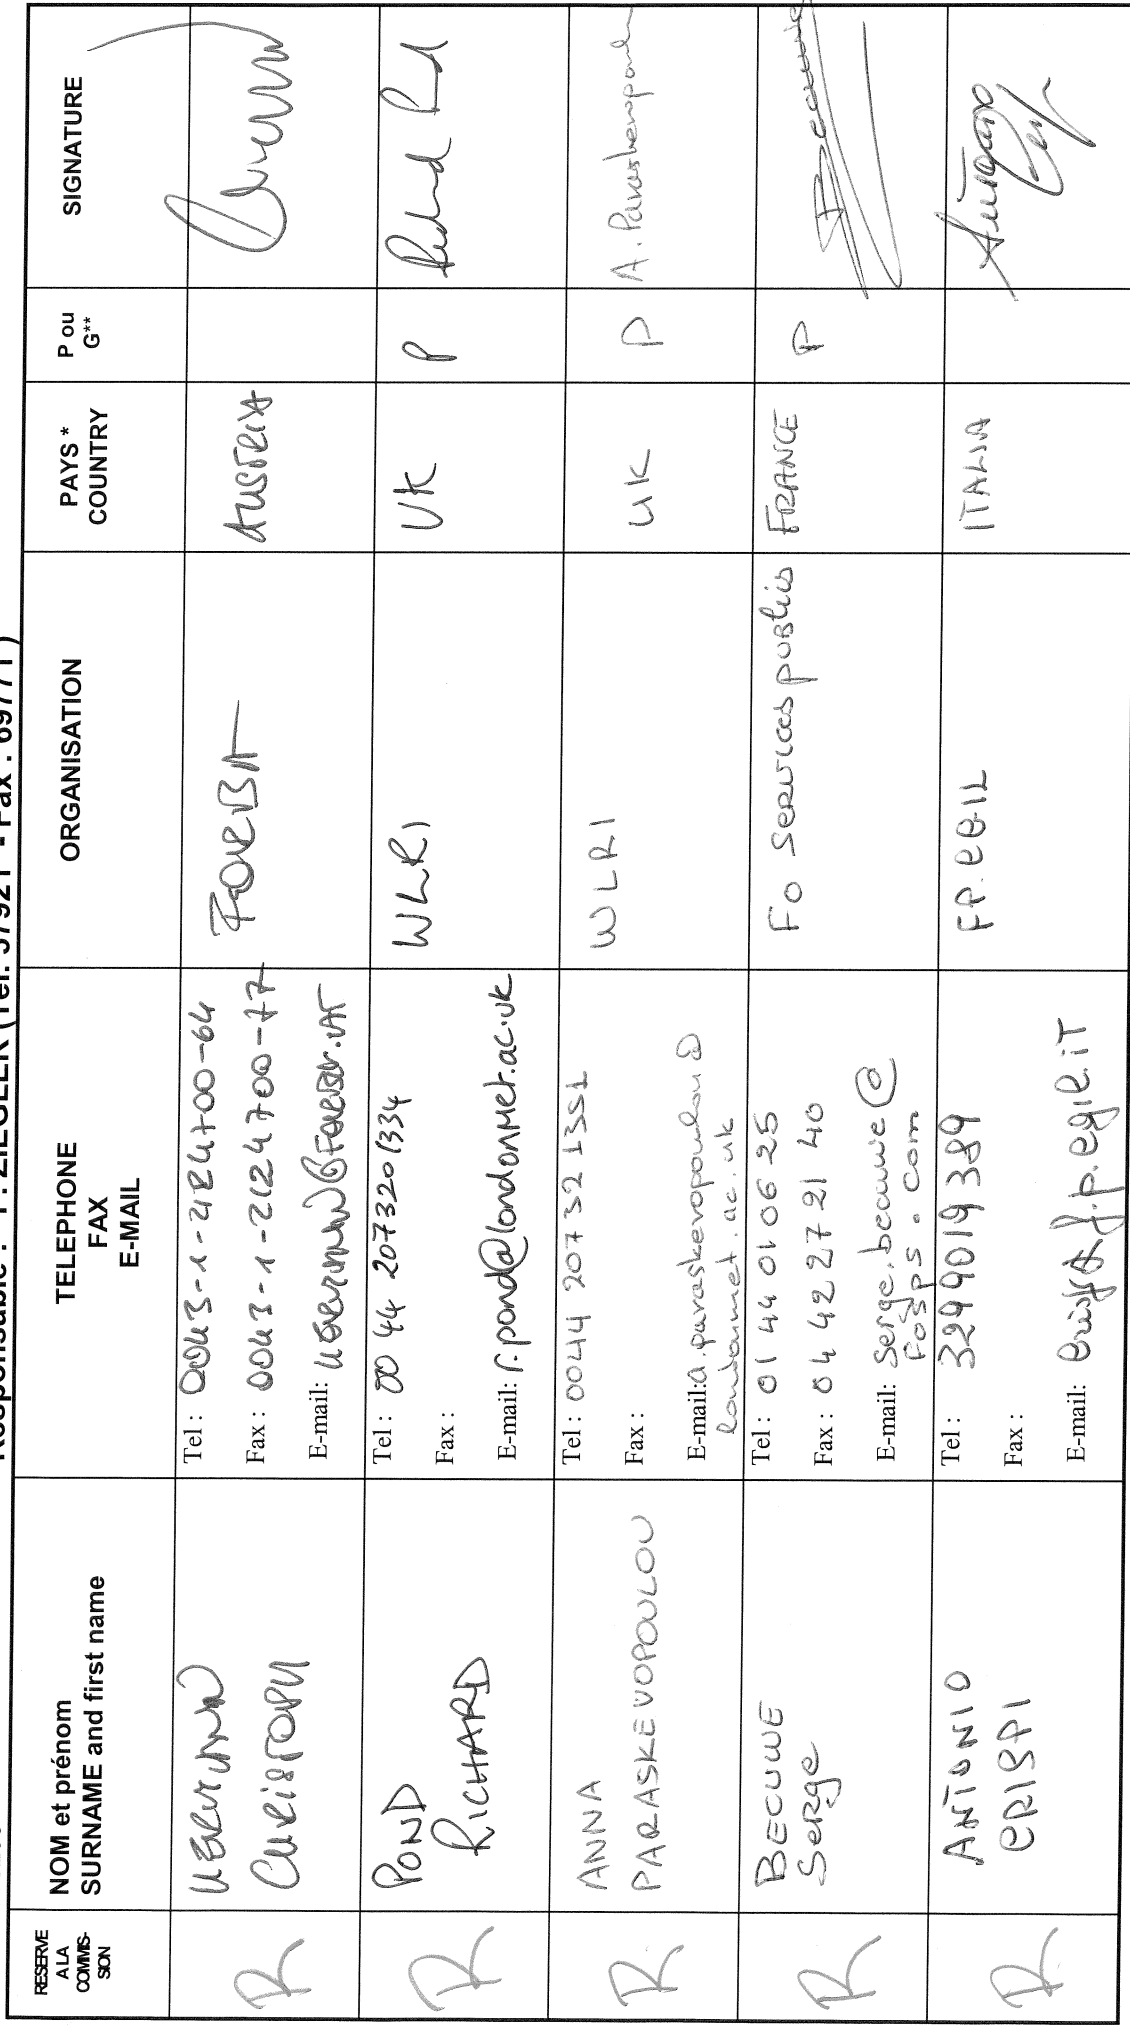 RESERVE A LA COMMIS-SION
NOM et prénom
SURNAME and first name
TELEPHONE
FAX
E-MAIL
ORGANISATION
PAYS *
COUNTRY
P ou
G**
SIGNATURE
R
HERMANN
CHRISTOPH
Tel : 0043-1-2124700-64
Fax : 0043-1-2124700-77
E-mail: HERMANN@FORBA.AT
FORBA
AUSTRIA
R
POND
RICHARD
Tel : 00 44 2073201334
Fax :
E-mail: r.pond@londonmet.ac.uk
WLRI
UK
P
Richard Pond
R
ANNA
PARASKEVOPOULOU
Tel : 0044 20732 1351
Fax :
E-mail: a.paraskevopoulou@
londonmet.ac.uk
WLRI
UK
P
A. Paraskevopoulou
R
BECUWE
Serge
Tel : 01 44 01 06 25
Fax : 04 42 27 21 40
E-mail: Serge.becuwe@
fosps.com
Fo Services publics
FRANCE
P
Becuwe
R
ANTONIO
CRISPI
Tel : 3299019389
Fax :
E-mail: f.p.cgil.it
FP.CGIL
ITALIA
Antonio